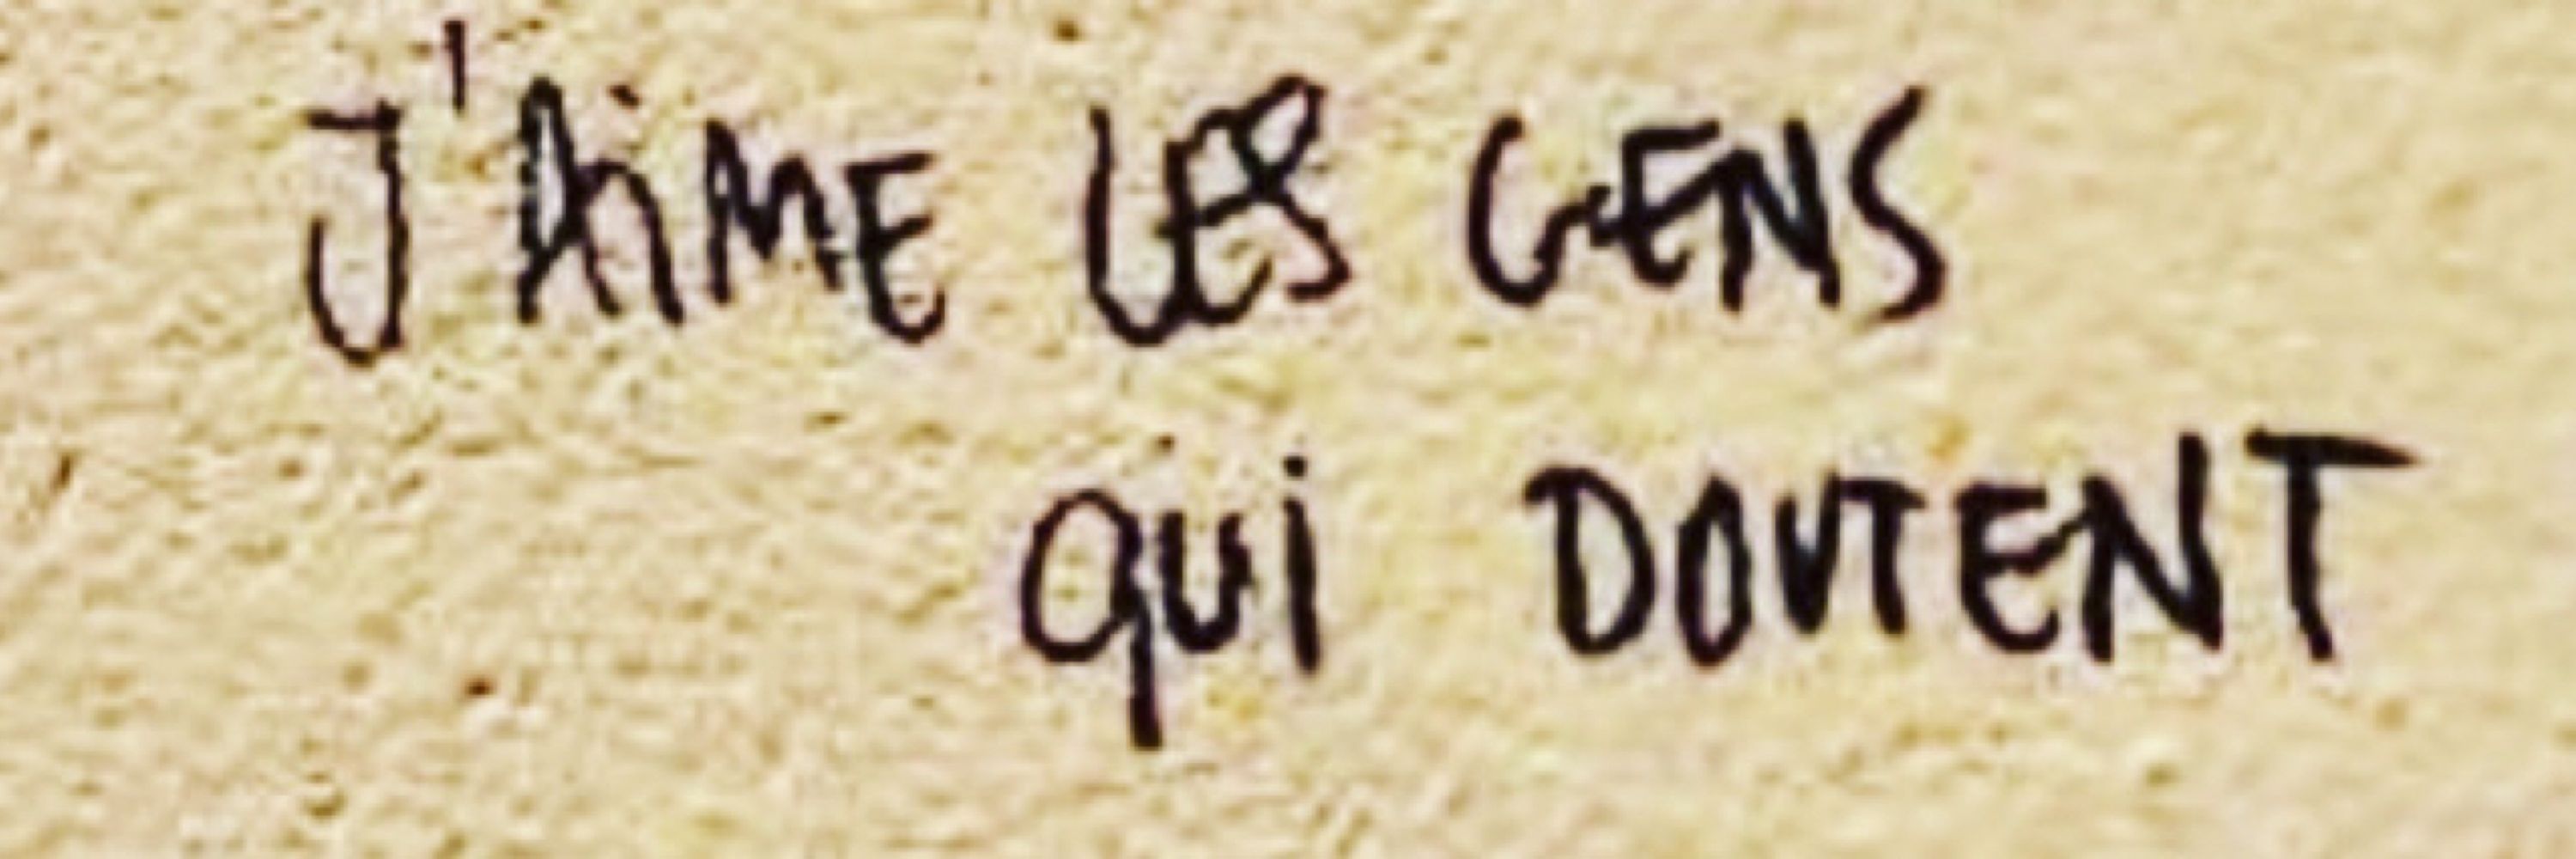 J'AiME LES GENS
qui DOUTENT